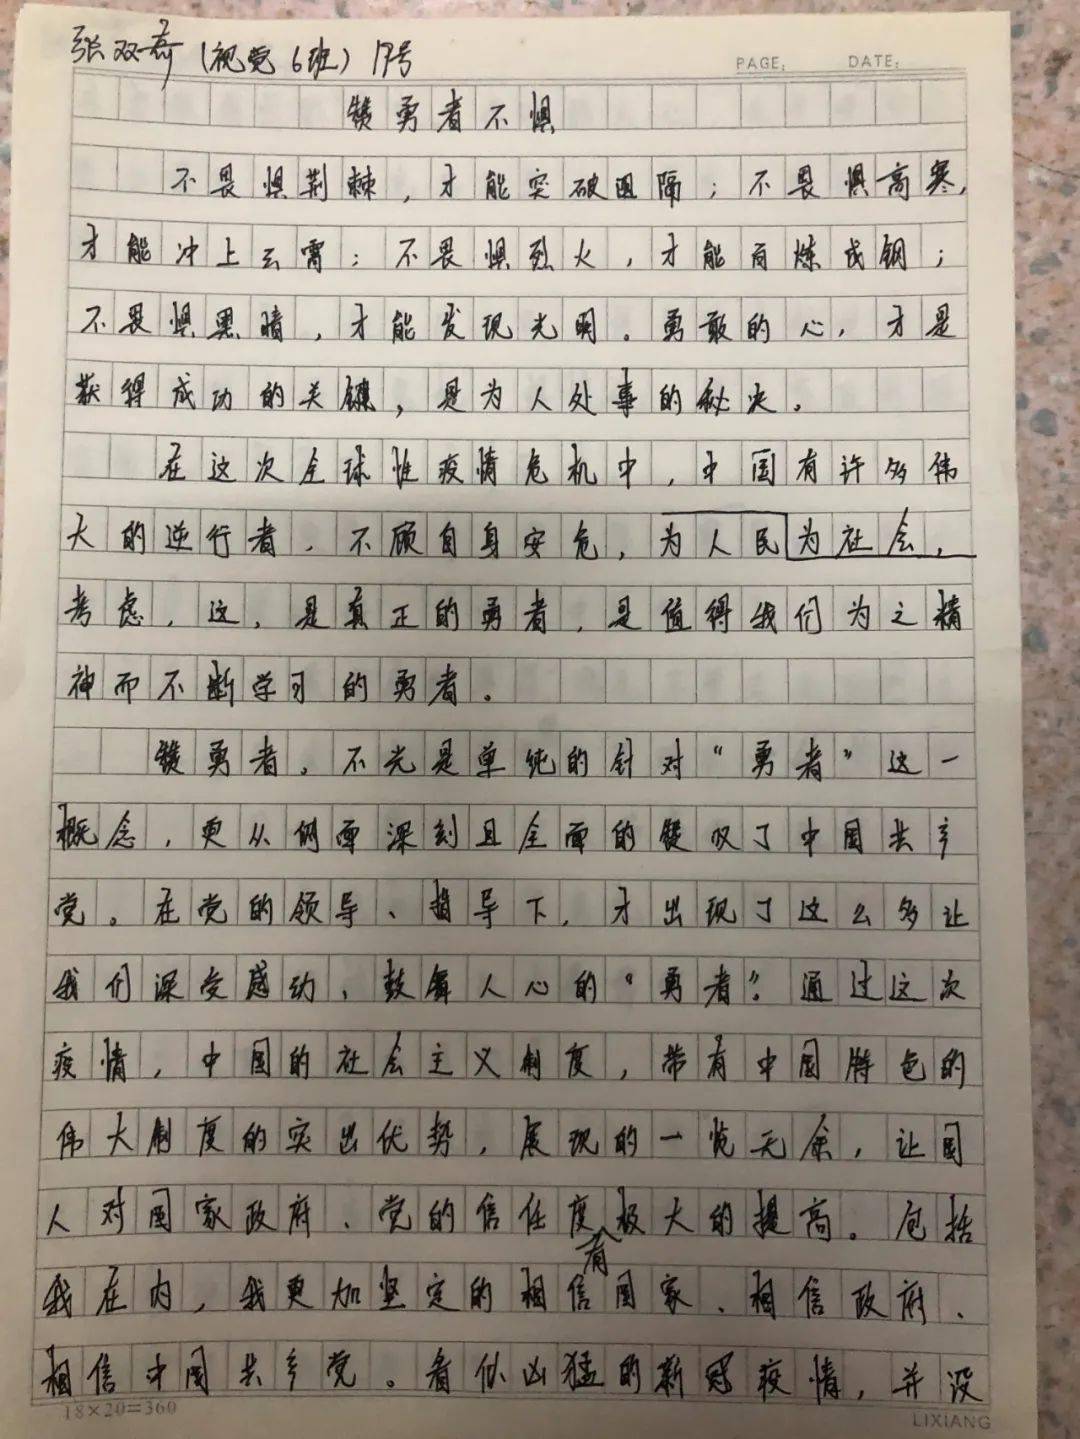 张双奇（视觉6班）17号
PAGE: DATE:
赞勇者不惧
不畏惧荆棘，才能突破阻隔；不畏惧高寒，
才能冲上云霄；不畏惧烈火，才能百炼成钢；
不畏惧黑暗，才能发现光明。勇敢的心，才是
获得成功的关键，是为人处事的秘决。
在这次全球性疫情危机中，中国有许多伟
大的逆行者，不顾自身安危，为人民为社会，
考虑，这，是真正的勇者，是值得我们为之精
神而不断学习的勇者。
赞勇者。不光是单纯的针对“勇者”这一
概念，更从侧面深刻且全面的赞叹了中国共产
党。在党的领导、指导下，才出现了这么多让
我们深受感动、鼓舞人心的“勇者”。通过这次
疫情，中国的社会主义制度，带有中国特色的
伟大制度的突出优势，展现的一览无余，让国
人对国家政府、党的信任度有极大的提高。包括
我在内，我更加坚定的相信国家、相信政府、
相信中国共产党。看似凶猛的新冠疫情，并没
18×20=360
LIXIANG